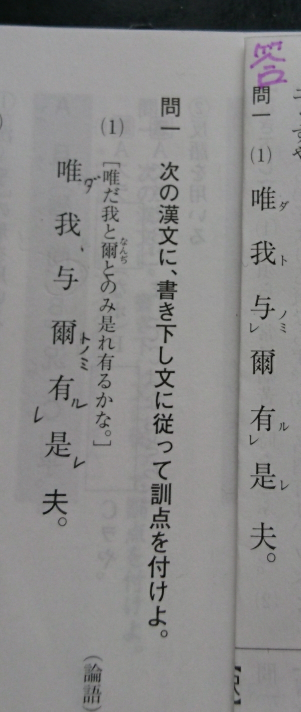 答
問一 (1) 唯ダ我ト与ノミレ爾有ルレ是レ夫。
問一 次の漢文に、書き下し文に従って訓点を付けよ。
(1) [唯だ我と爾なんぢとのみ是れ有るかな。]
唯ダ我、与爾トノミ有ルレ是レ夫。
(論語)